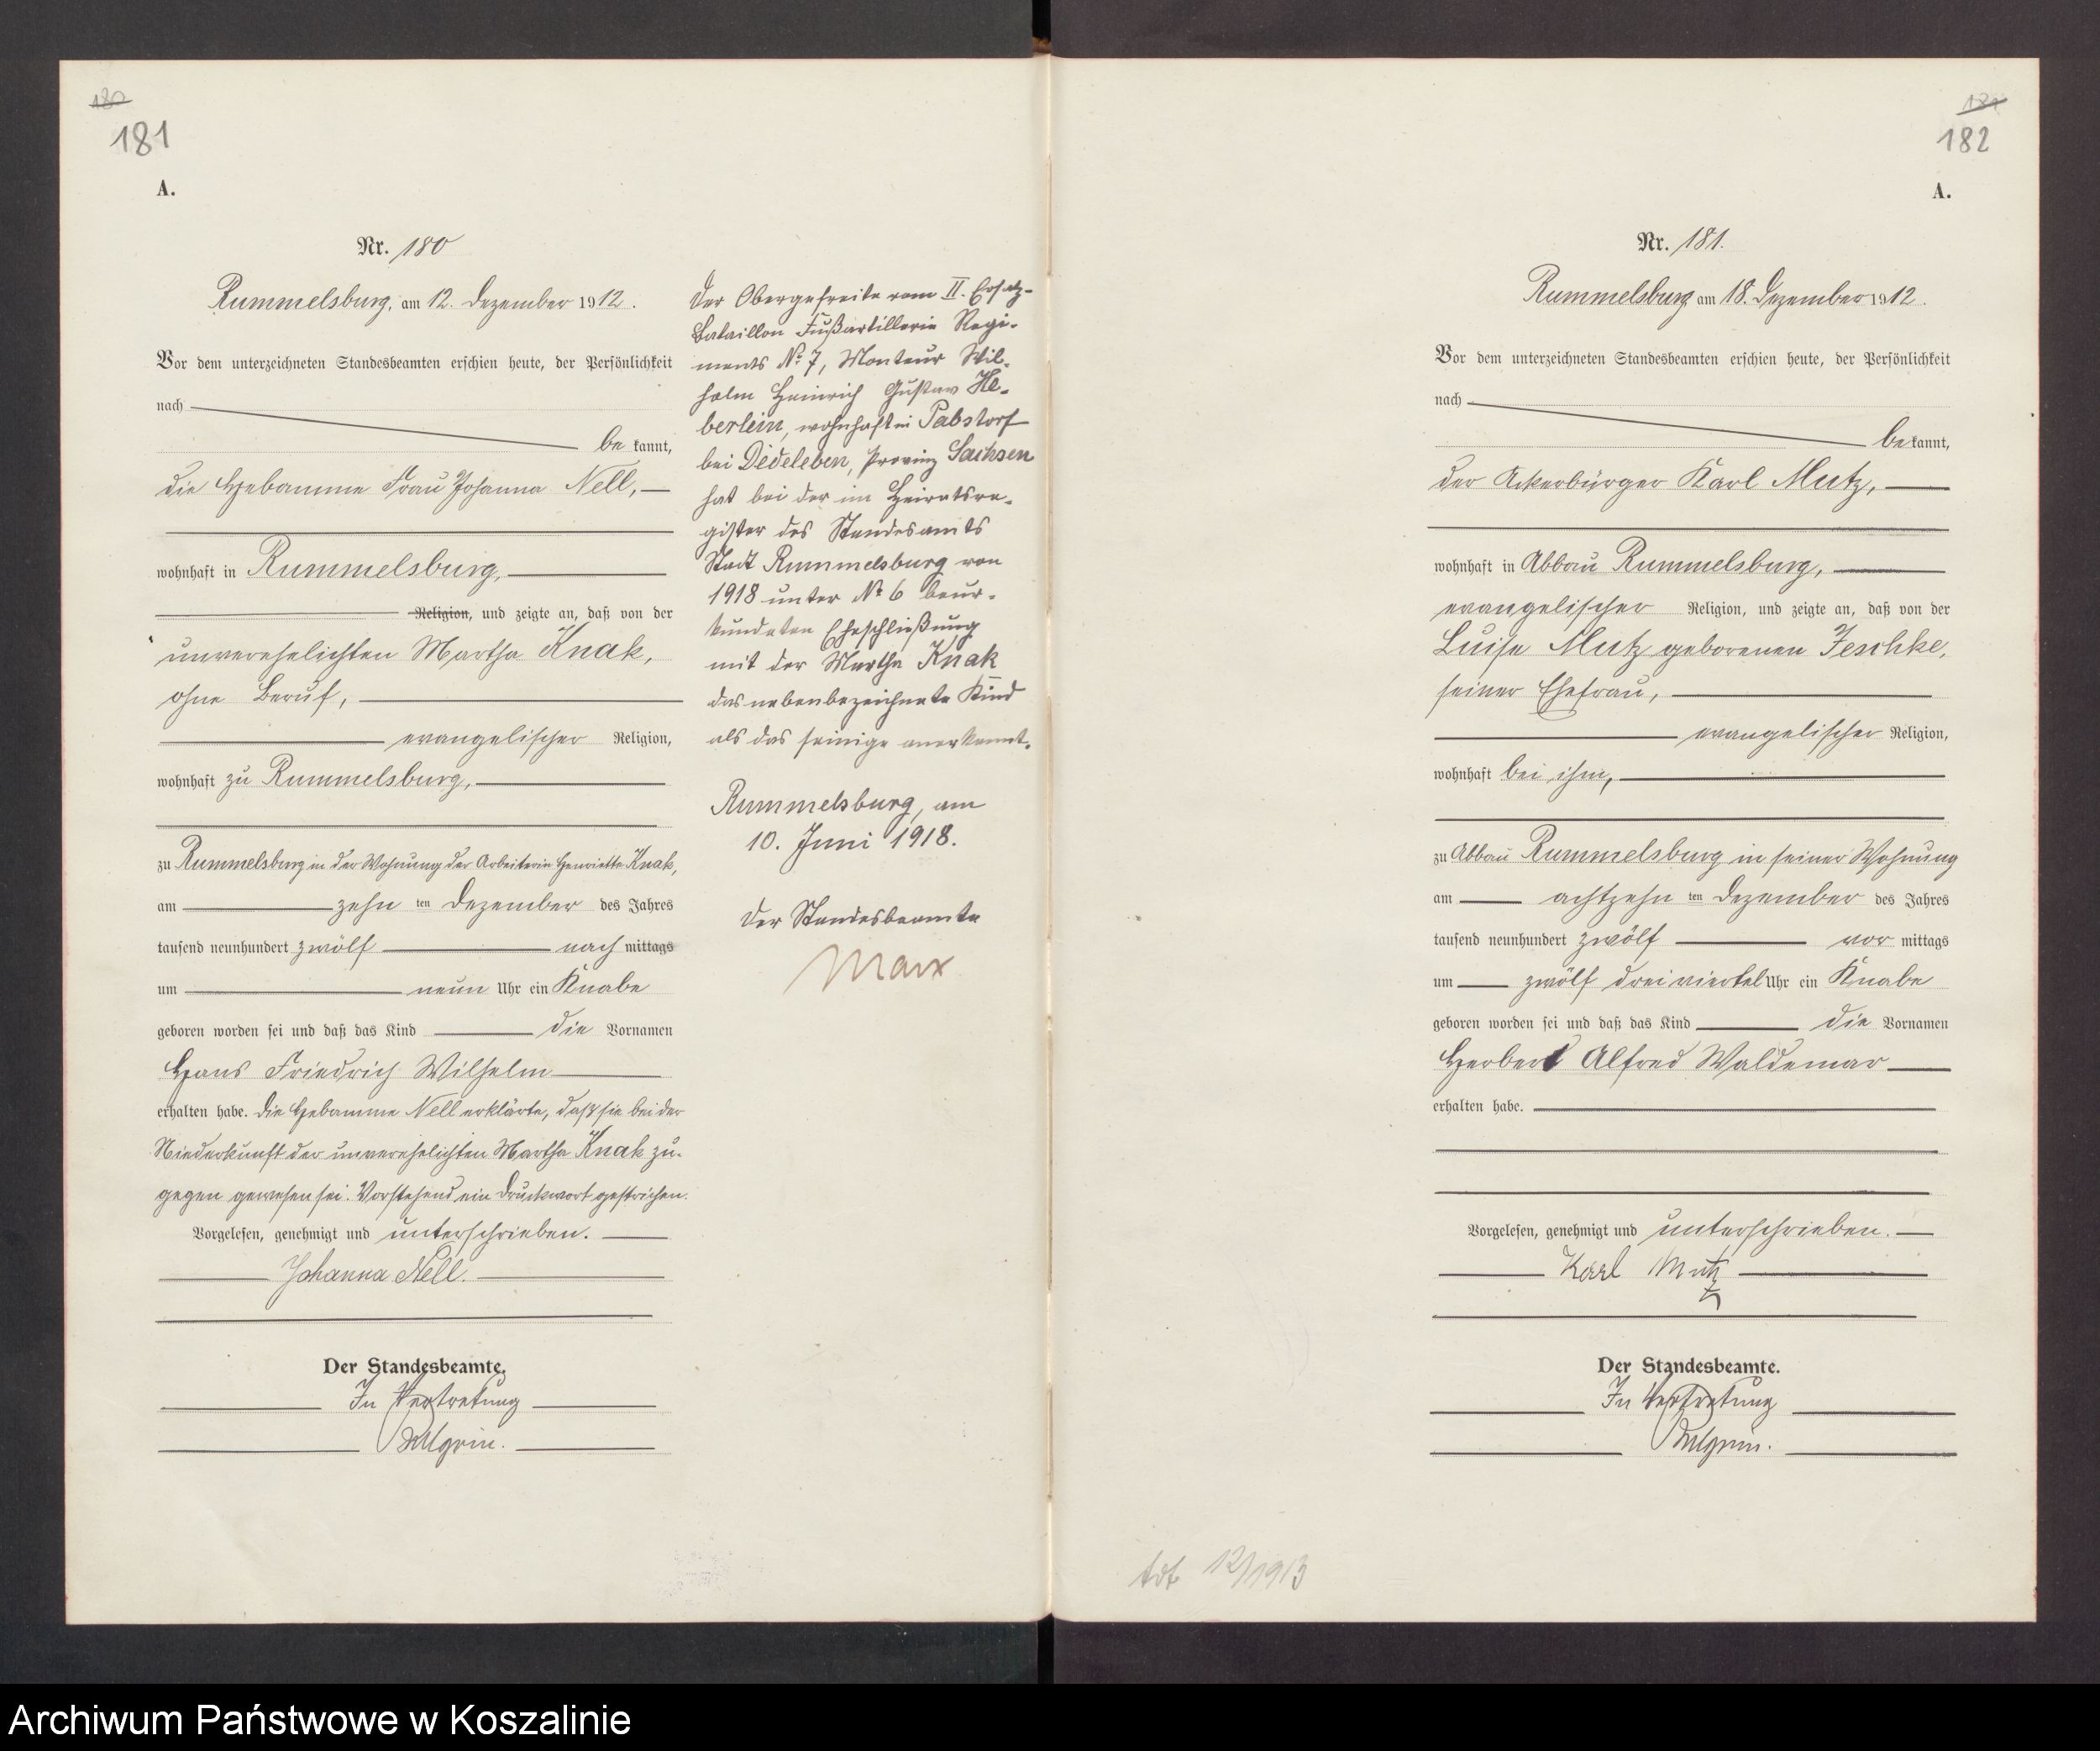 180
181
A.
Nr. 180
Rummelsburg, am 12. Dezember 1912.
Vor dem unterzeichneten Standesbeamten erschien heute, der Persönlichkeit
nach
be kannt,
die Hebamme Frau Johanna Nell,
wohnhaft in Rummelsburg,
Religion, und zeigte an, daß von der
unverehelichten Martha Knak,
ohne Beruf,
evangelischer Religion,
wohnhaft zu Rummelsburg,
zu Rummelsburg in der Wohnung der Arbeiterin Henriette Knak,
am zehn ten Dezember des Jahres
tausend neunhundert zwölf nach mittags
um neun Uhr ein Knabe
geboren worden sei und daß das Kind die Vornamen
Hans Friedrich Wilhelm
erhalten habe. Die Hebamme Nell erklärte, daß sie bei der
Niederkunft der unverehelichten Martha Knak zu-
gegen gewesen sei. Vorstehend ein Druckwort gestrichen.
Vorgelesen, genehmigt und unterschrieben.
Johanna Nell.
Der Standesbeamte,
In Vertretung
Der Obergefreite vom II. Ersatz-
Bataillon Fußartillerie Regi-
ments No 7, Monteur Wil-
helm Heinrich Gustav He-
berlein, wohnhaft in Pabstorf
bei Dedeleben, Provinz Sachsen
hat bei der im Heiratsre-
gister des Standesamts
Stadt Rummelsburg von
1918 unter No 6 beur-
kundeten Eheschließung
mit der Martha Knak
das nebenbezeichnete Kind
als das seinige anerkannt.
Rummelsburg, am
10. Juni 1918.
Der Standesbeamte
Marx
182
A.
Nr. 181.
Rummelsburg am 18. Dezember 1912.
Vor dem unterzeichneten Standesbeamten erschien heute, der Persönlichkeit
nach
be kannt,
der Ackerbürger Karl Mutz,
wohnhaft in Abbau Rummelsburg,
evangelischer Religion, und zeigte an, daß von der
Luise Mutz geborenen Jeschke,
seiner Ehefrau,
evangelischer Religion,
wohnhaft bei ihm,
zu Abbau Rummelsburg in seiner Wohnung
am achtzehn ten Dezember des Jahres
tausend neunhundert zwölf vor mittags
um zwölf dreiviertel Uhr ein Knabe
geboren worden sei und daß das Kind die Vornamen
Herbert Alfred Waldemar
erhalten habe.
Vorgelesen, genehmigt und unterschrieben.
Karl Mutz
Der Standesbeamte.
In Vertretung
12/1913
Archiwum Państwowe w Koszalinie